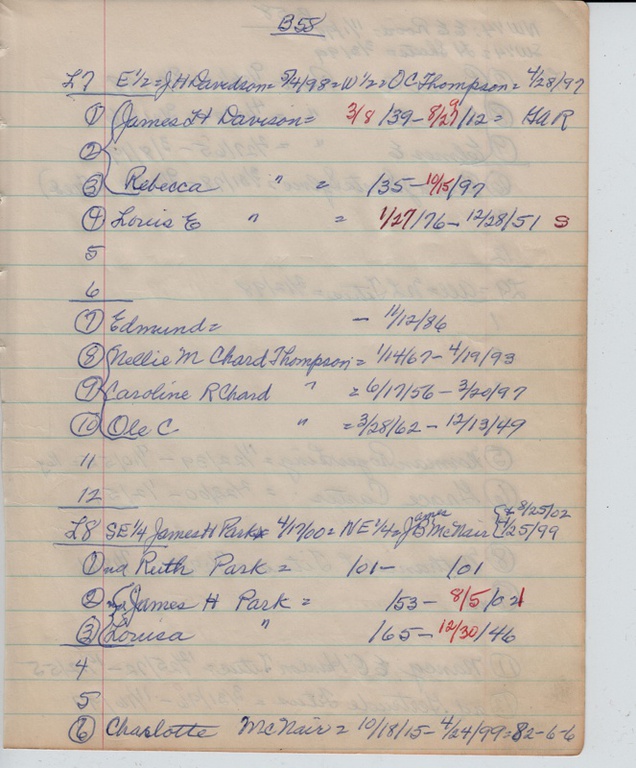 B58
L7 E 1/2 = J H Davidson = 5/4/98 = W 1/2 = O C Thompson = 4/28/97
1 James H Davison = 3/8/39 - 8/29/12 = GAR
2
3 Rebecca " = /35 - 10/15/97
4 Louis E " = 1/27/76 - 12/28/51 S
5
6
7 Edmund = - 11/12/86
8 Nellie M Chard Thompson = 1/14/67 - 4/19/93
9 Caroline R Chard " = 6/17/56 - 3/20/97
10 Ole C " = 3/28/62 - 12/13/49
11
12
L8 SE 1/4 James H Park 4/17/00 = NE 1/4 = James B McNair { + 8/25/02 1/25/99
1 nd Ruth Park = /01 - /01
2 James H Park = /53 - 8/5/021
3 Louisa " /65 - 12/30/46
4
5
6 Charlotte McNair = 10/18/15 - 4/24/99 = 82-6-6